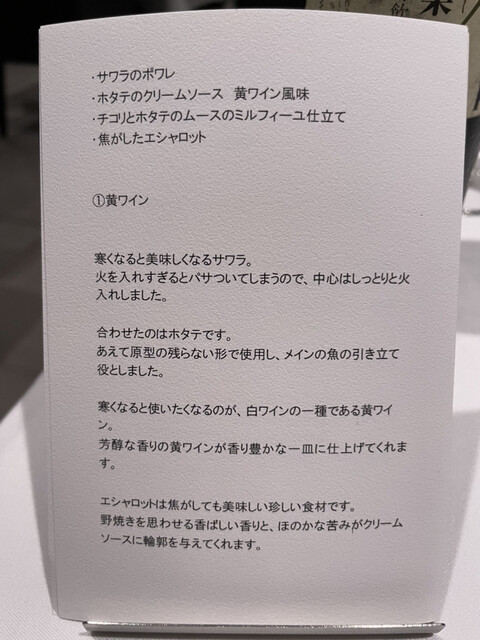 ・サワラのポワレ
・ホタテのクリームソース　黄ワイン風味
・チコリとホタテのムースのミルフィーユ仕立て
・焦がしたエシャロット
①黄ワイン
寒くなると美味しくなるサワラ。
火を入れすぎるとパサついてしまうので、中心はしっとりと火
入れしました。
合わせたのはホタテです。
あえて原型の残らない形で使用し、メインの魚の引き立て
役としました。
寒くなると使いたくなるのが、白ワインの一種である黄ワイ
ン。
芳醇な香りの黄ワインが香り豊かな一皿に仕上げてくれま
す。
エシャロットは焦がしても美味しい珍しい食材です。
野焼きを思わせる香ばしい香りと、ほのかな苦みがクリーム
ソースに輪郭を与えてくれます。